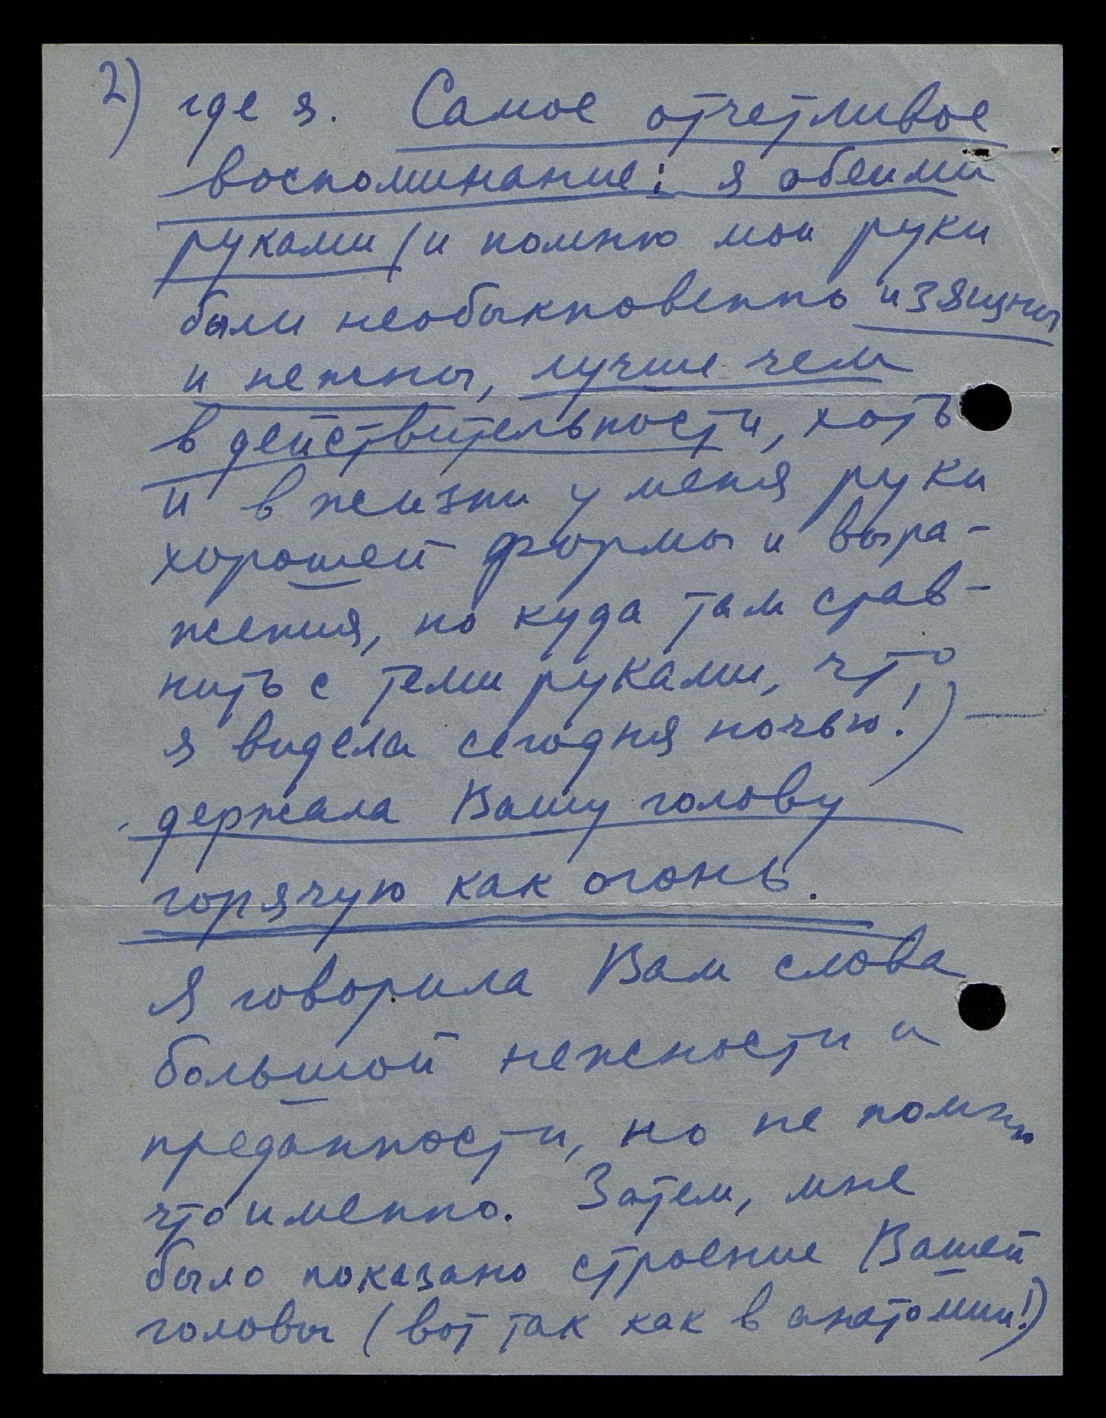 2) где я. Самое отчетливое
воспоминание: я обеими
руками (и помню мои руки
были необыкновенно изящны
и нежны, лучше чем
в действительности, хоть
и в жизни у меня руки
хорошей формы и выра-
жения, но куда там срав-
нить с теми руками, что
я видела сегодня ночью!) —
держала Вашу голову
горячую как огонь.
Я говорила Вам слова
большой нежности и
преданности, но не помню
что именно. Затем, мне
было показано строение Вашей
головы (вот так как в анатомии!)